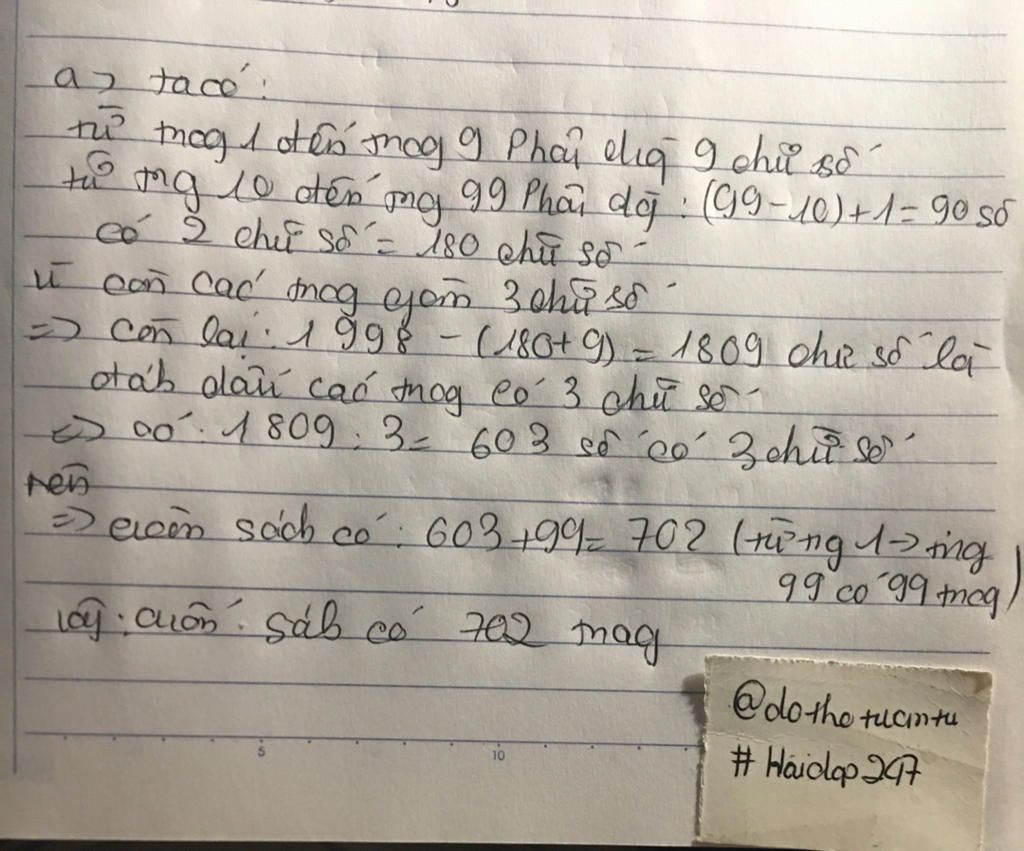 a) ta có:
từ trag 1 đến trag 9 Phải dùg 9 chữ số
từ trg 10 đến trg 99 Phải dùg: (99-10)+1=90 số
có 2 chữ số = 180 chữ số
Vì còn các trag gồm 3 chữ số
=> Còn lại: 1998 - (180+9) = 1809 chữ số là
đáh dấu các trag có 3 chữ số
=> có: 1809:3= 603 số có 3 chữ số
nên
=> cuốn sách có: 603+99= 702 (từ trg 1-> trg
99 có 99 trag)
Vậy: cuốn sáh có 702 trag
5
10
@dothotuantu
# Hoidap247